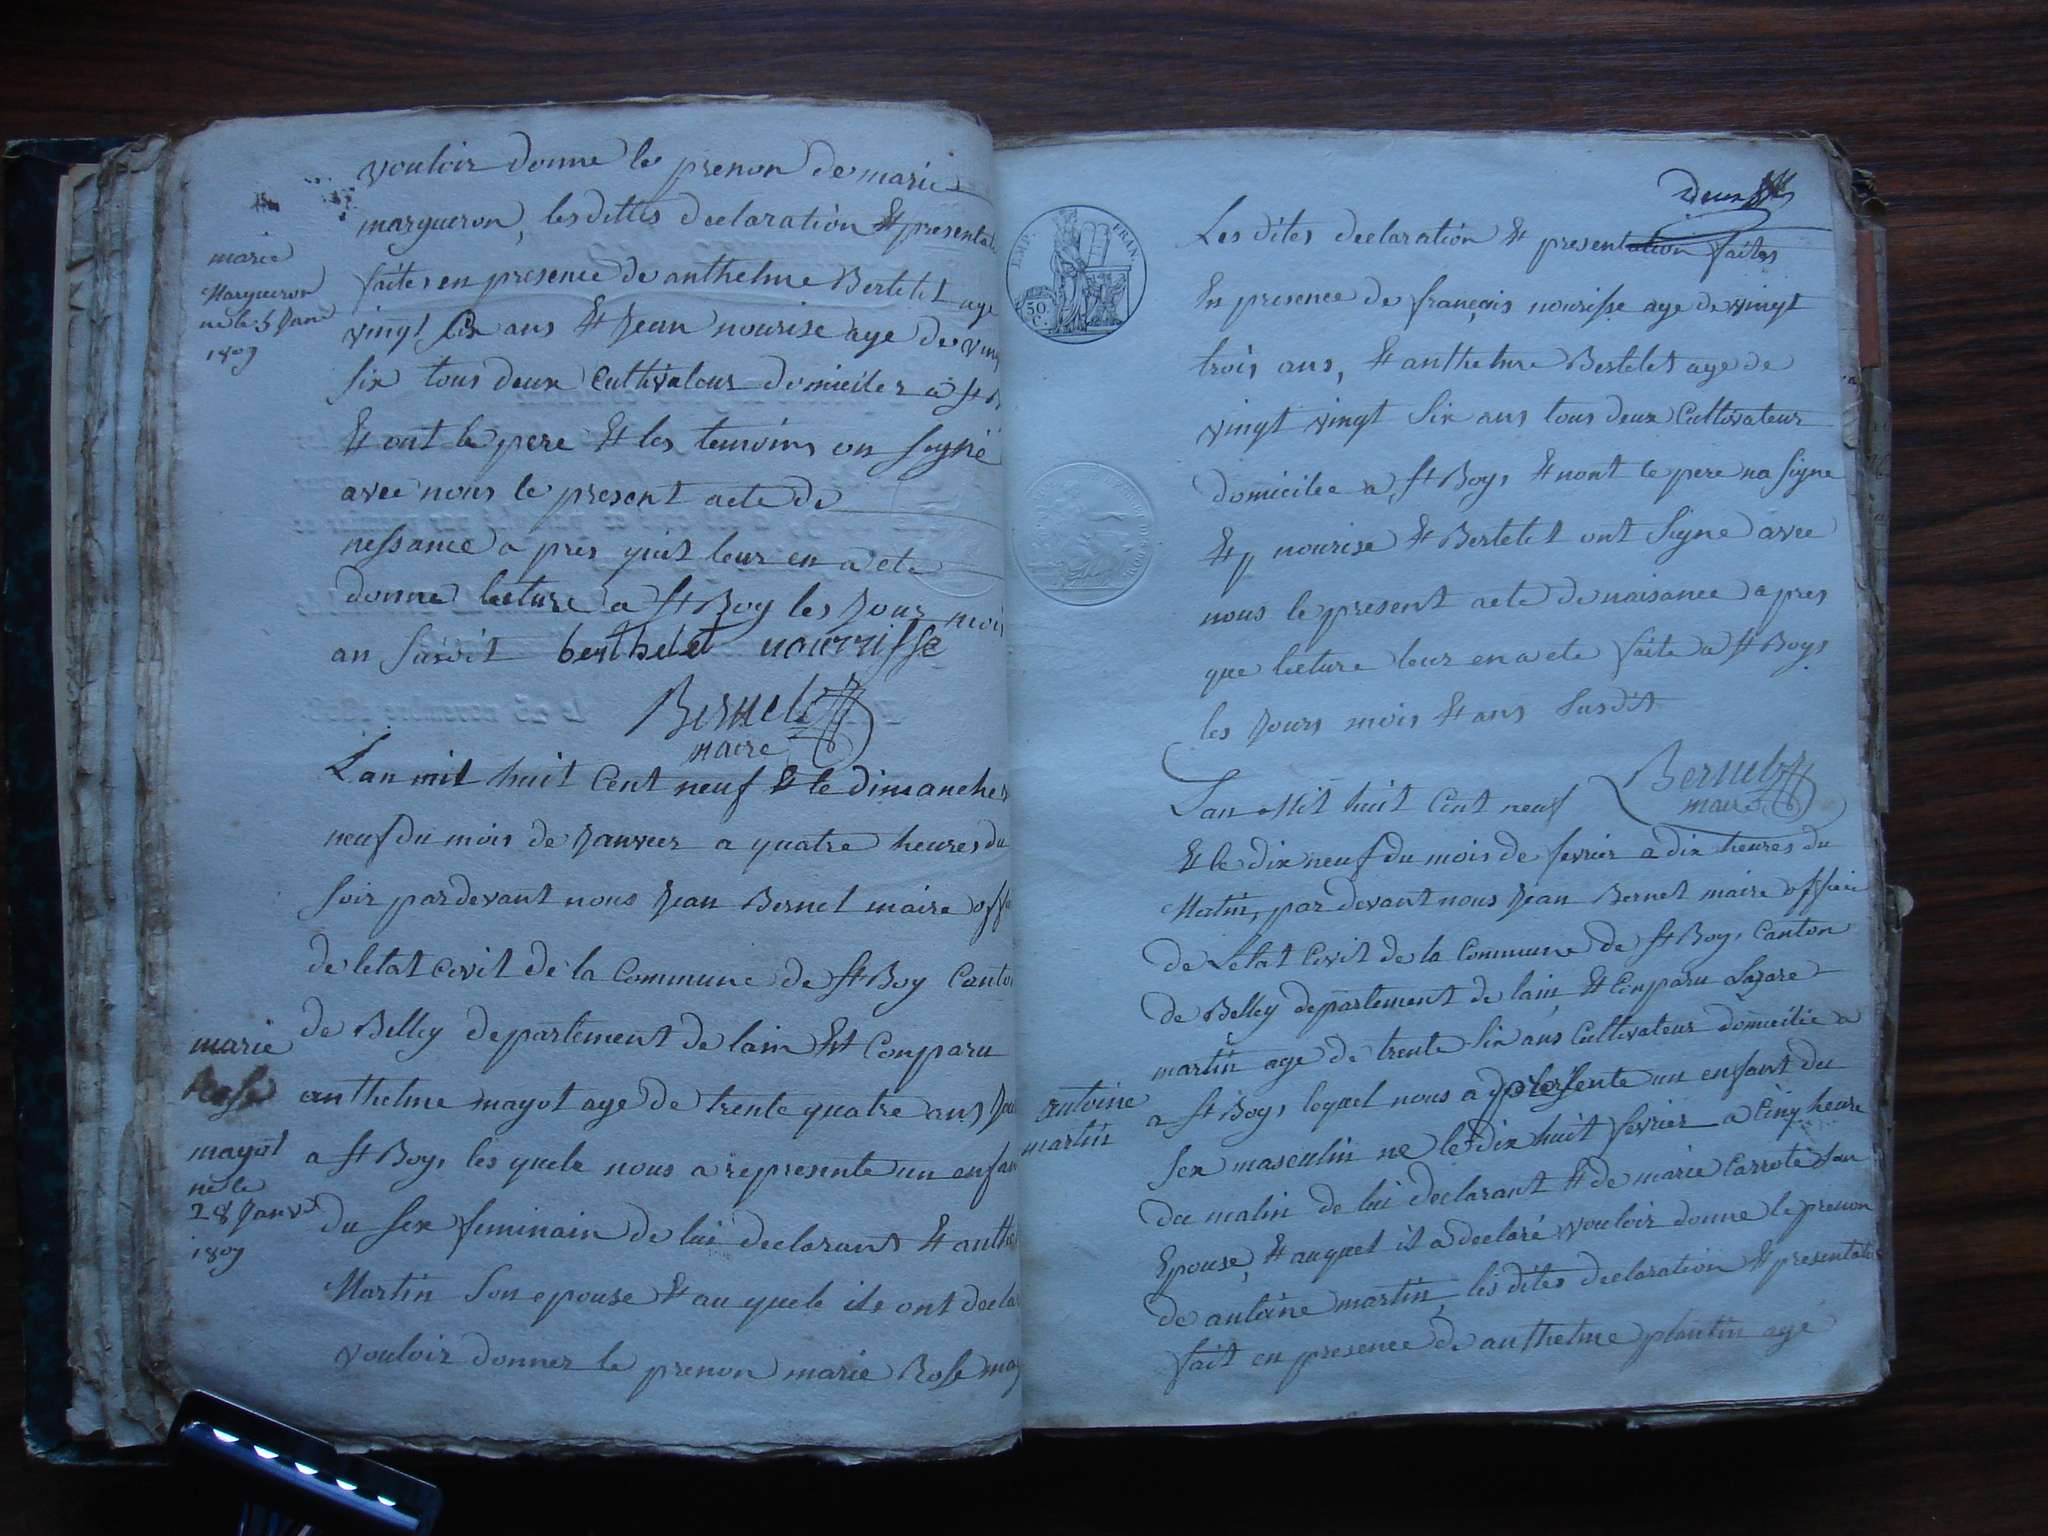 vouloir donne le prenon de marie
margueron, les dittes declaration Et presentat
faites en presence de anthelme Bertelet age
vingt six ans Et Jean nourise age de vin
six tous deux Cultivateur domicilez a St B
Et ont le pere Et les temoins on signé
avec nous le present acte de
nessance a pres quil leur en a ete
donne lecture a St Boy les Jour mois
an susdit berthelet nourrisse
Bernet
maire
marie
Margueron
ne le 5 Janv
1809
Lan mil huit Cent neuf Et le dimanche
neuf du mois de Janvier a quatre heures du
soir pardevant nous Jean Bernet maire offi
de letat Civil de la Commune de St Boy Canto
de Belley departement de lain Est Conparu
anthelme mayot age de trente quatre ans
a St Boys les quele nous a representé un enfan
du sex feminain de lui declarant Et anthe
Martin son epouse Et au quele ils ont decla
vouloir donner le prenon marie Rose may
marie
Rose
mayot
ne le
28 Janv
1809
Deux
EMP. FRAN.
50
C.
Les dites declaration Et presentation faites
En presence de françois nourisse age de vingt
trois ans, Et anthelme Bertelet age de
vingt vingt six ans tous deux Cultivateur
domicilee a St Boys Et nont le pere na signe
Et nourise Et Bertelet ont signe avec
nous le present acte de naisance apres
que lecture leur en a ete faite a St Boys
les Jours mois Et ans susdit
Bernet
maire
Lan Mil huit Cent neuf
Et le dix neuf du mois de fevrier a dix heures du
Matin, par devant nous Jean Bernet maire officie
de Letat Civil de la Commune de St Boys Canton
de Belley departement de lain Et Conparu Lazare
martin age de trente six ans Cultivateur domicilie a
a St Boys lequel nous a presente un enfant du
sex masculin ne le dix huit fevrier a Cinq heure
du matin de lui declarant Et de marie Carrote son
Epouse, Et auquel il a declaré vouloir donne le prenon
de antoine martin, les dites declaration Et presentatio
fait en presence de anthelme plantin age
antoine
martin